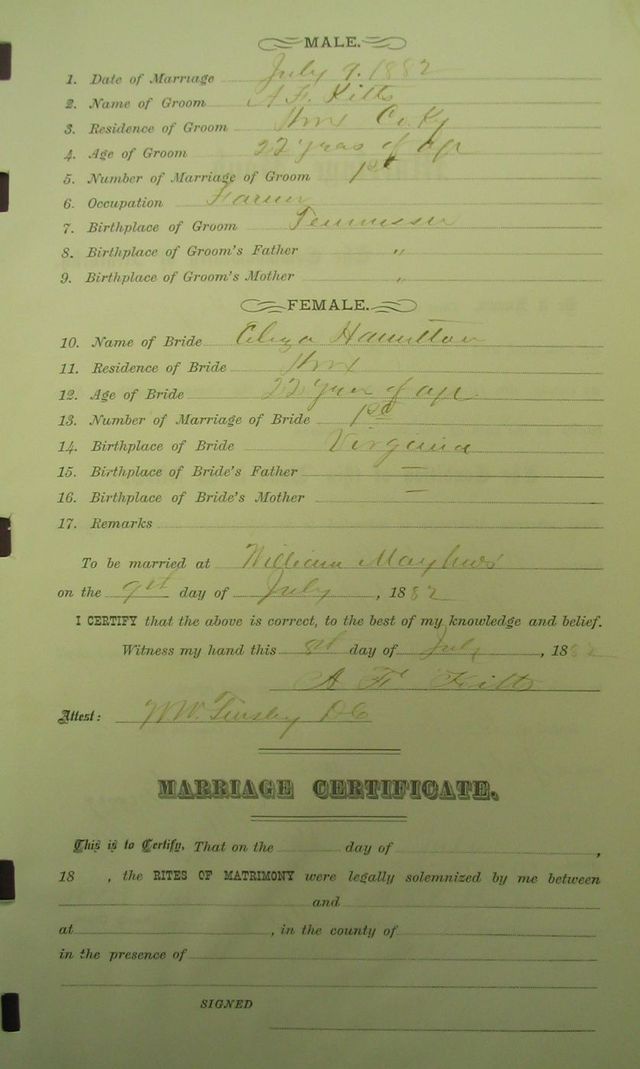 MALE.
1. Date of Marriage July 9. 1882
2. Name of Groom A F. Kitts
3. Residence of Groom Knox Co. Ky
4. Age of Groom 22 years of age
5. Number of Marriage of Groom 1st
6. Occupation Farmer
7. Birthplace of Groom Tennessee
8. Birthplace of Groom's Father "
9. Birthplace of Groom's Mother "
FEMALE.
10. Name of Bride Hamilton
11. Residence of Bride Knox
12. Age of Bride 22 years of age
13. Number of Marriage of Bride 1st
14. Birthplace of Bride Virginia
15. Birthplace of Bride's Father —
16. Birthplace of Bride's Mother —
17. Remarks
To be married at William
on the 9th day of July, 1882
I CERTIFY that the above is correct, to the best of my knowledge and belief.
Witness my hand this 8th day of July, 1882
A F Kitts
Attest: W W. Tinsley DC
MARRIAGE CERTIFICATE.
This is to Certify, That on the day of ,
18 , the RITES OF MATRIMONY were legally solemnized by me between
and
at , in the county of
in the presence of
SIGNED